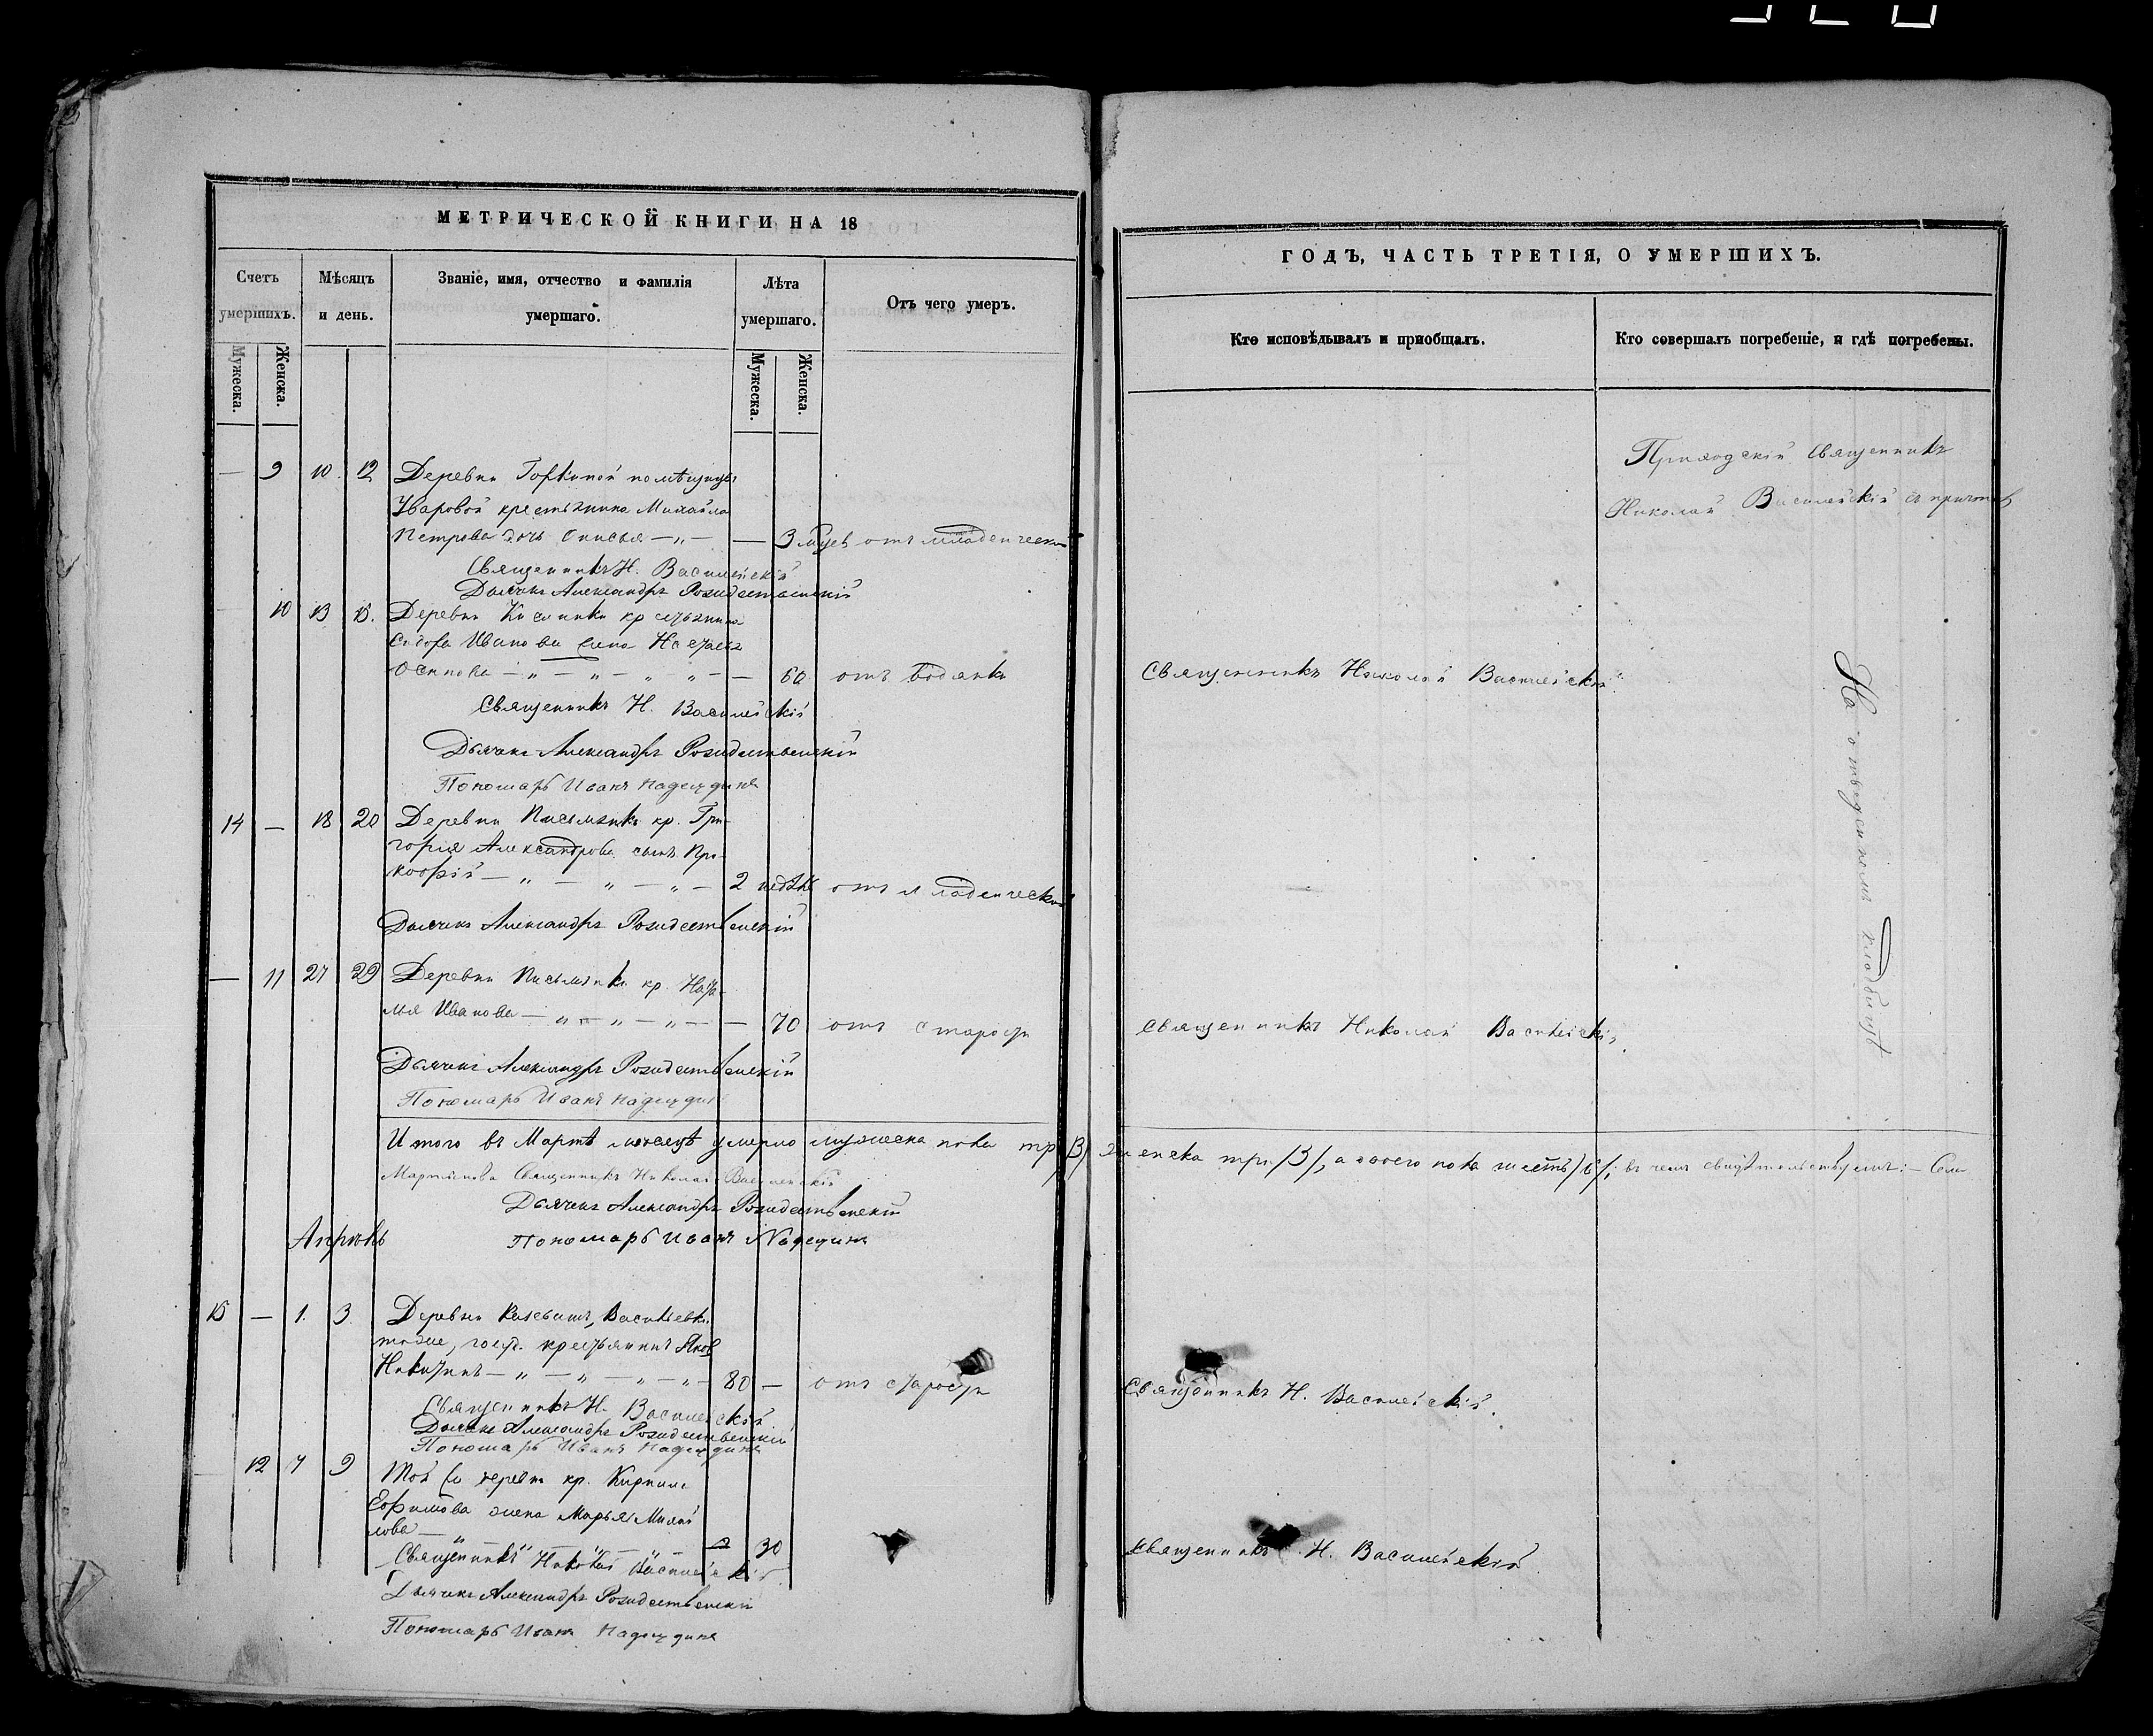 МЕТРИЧЕСКОЙ КНИГИ НА 18
Счетъ умершихъ.
Мужеска.
Женска.
Мѣсяцъ и день.
Званіе, имя, отчество и фамилія умершаго.
Лѣта умершаго.
Мужеска.
Женска.
Отъ чего умеръ.
— 9 10 12 Деревни помѣщицы
Уваровой крестьянина Михайла
Петрова дочь — „ — — 3 отъ младенческой
Священникъ Н. Василейскій
Дьячекъ Александръ Рождественскій
10 13 15. Деревни крестьянина
Ивановa Настасья
Осипова — „ — „ — „ „ — — 60 отъ водянки
Священникъ Н. Василейскій
Дьячекъ Александръ Рождественскій
Пономарь Иванъ Надеждинъ
14 — 18 20 Деревни кр. Гри-
горія Александрова сынъ Про-
кофій — „ — „ — „ — 2 недѣль отъ младенческой
Дьячекъ Александръ Рождественскій
— 11 27 29 Деревни кр.
Иванова — „ — „ — „ — — 70 отъ старости
Дьячекъ Александръ Рождественскій
Пономарь Иванъ Надеждинъ
Итого въ Мартѣ мѣсяцѣ умерло мужеска пола три /3/
Мартынова Священникъ Николай Василейскій
Дьячекъ Александръ Рождественскій
Апрѣль Пономарь Иванъ Надеждинъ
15 — 1. 3. Деревни Васильевки
тоже, госуд. крестьянинъ Яковъ
Никитинъ — „ — „ — „ — „ — 80 — отъ старости
Священникъ Н. Василейскій
Дьячекъ Александръ Рождественскій
Пономарь Иванъ Надеждинъ
— 12 7 9 Той же деревни кр. Кирилы
Ефимова жена Марья Михай
лова — „ 30
Священникъ Николай Василейскій
Дьячекъ Александръ Рождественскій
Пономарь Иванъ Надеждинъ
ГОДЪ, ЧАСТЬ ТРЕТІЯ, О УМЕРШИХЪ.
Кто исповѣдывалъ и пріобщалъ.
Кто совершалъ погребеніе, и гдѣ погребены.
Приходскій Священникъ
Николай Василейскій съ причтомъ
Священникъ Николай Василейскій
На отведенномъ кладбищѣ
Священникъ Николай Василейскій.
женска три /3/, а всего пола шесть /6/; въ чемъ свидѣтельствуемъ: — Села
Священникъ Н. Василейскій.
Священникъ Н. Василейскій